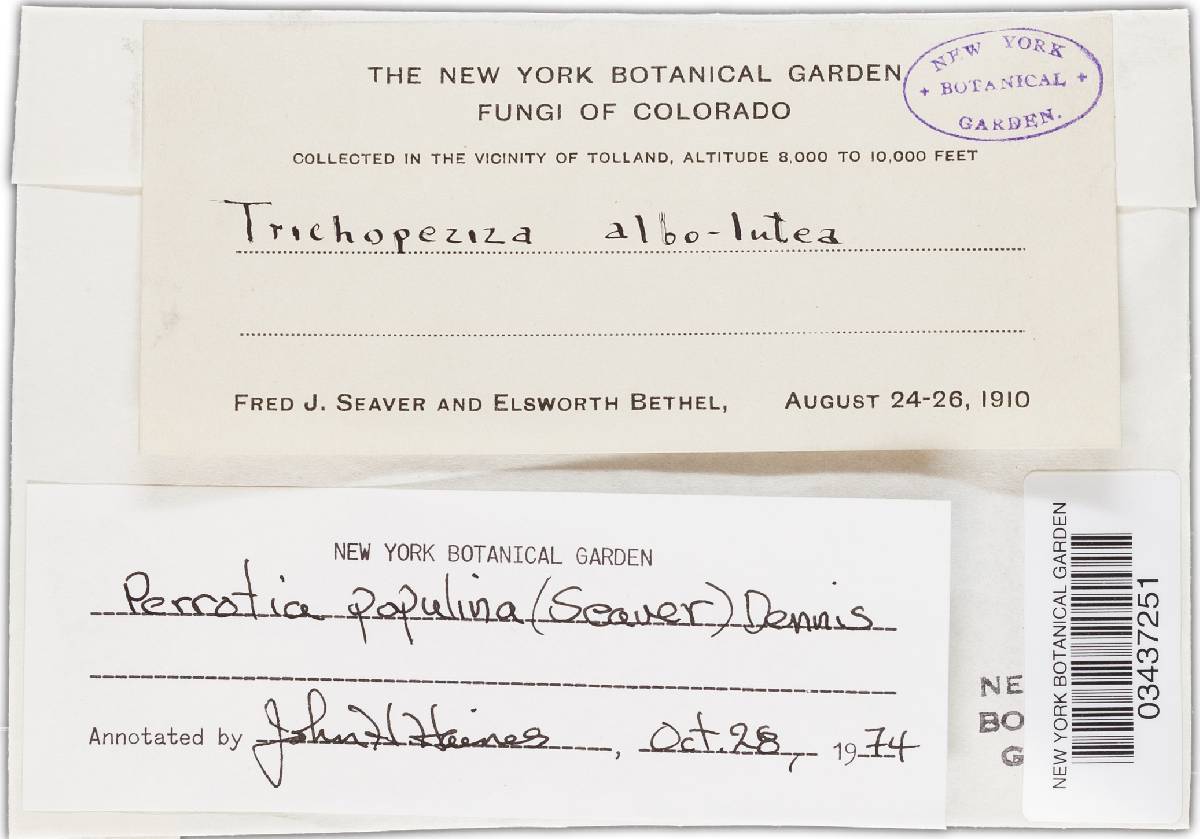 THE NEW YORK BOTANICAL GARDEN
FUNGI OF COLORADO
NEW YORK
+ BOTANICAL +
GARDEN.
COLLECTED IN THE VICINITY OF TOLLAND, ALTITUDE 8,000 TO 10,000 FEET
Trichopeziza albo-lutea
FRED J. SEAVER AND ELSWORTH BETHEL, AUGUST 24-26, 1910
NEW YORK BOTANICAL GARDEN
Perrotia populina (Seaver) Dennis
Annotated by John H Haines, Oct. 28, 1974
NE
BO
G
NEW YORK BOTANICAL GARDEN
03437251